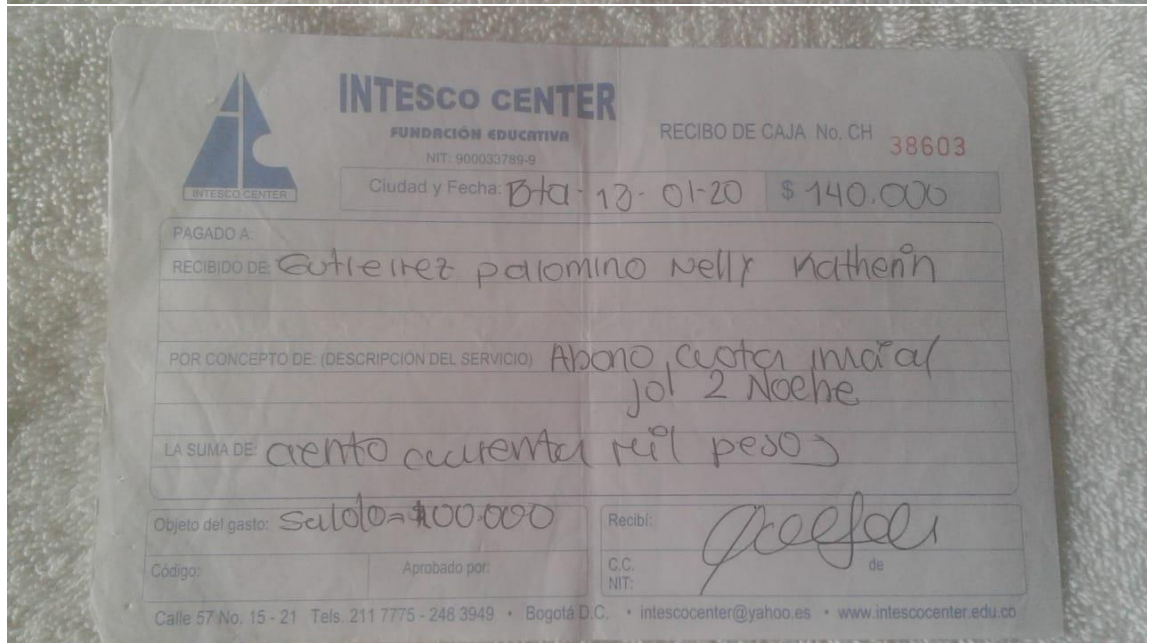 INTESCO CENTER
FUNDACIÓN EDUCATIVA
NIT: 900033789-9
RECIBO DE CAJA No. CH 38603
INTESCO CENTER
Ciudad y Fecha: Bta - 13 - 01-20 $ 140.000
PAGADO A:
RECIBIDO DE: Gutierrez palomino Nelly Katherin
POR CONCEPTO DE: (DESCRIPCIÓN DEL SERVICIO) Abono cuota inicial
2 Noche
LA SUMA DE: ciento cuarenta mil pesos
Objeto del gasto: Saldo = 100.000 Recibí:
Código: Aprobado por: C.C. de
NIT:
Calle 57 No. 15 - 21 Tels. 211 7775 - 248 3949 • Bogotá D.C. • intescocenter@yahoo.es • www.intescocenter.edu.co